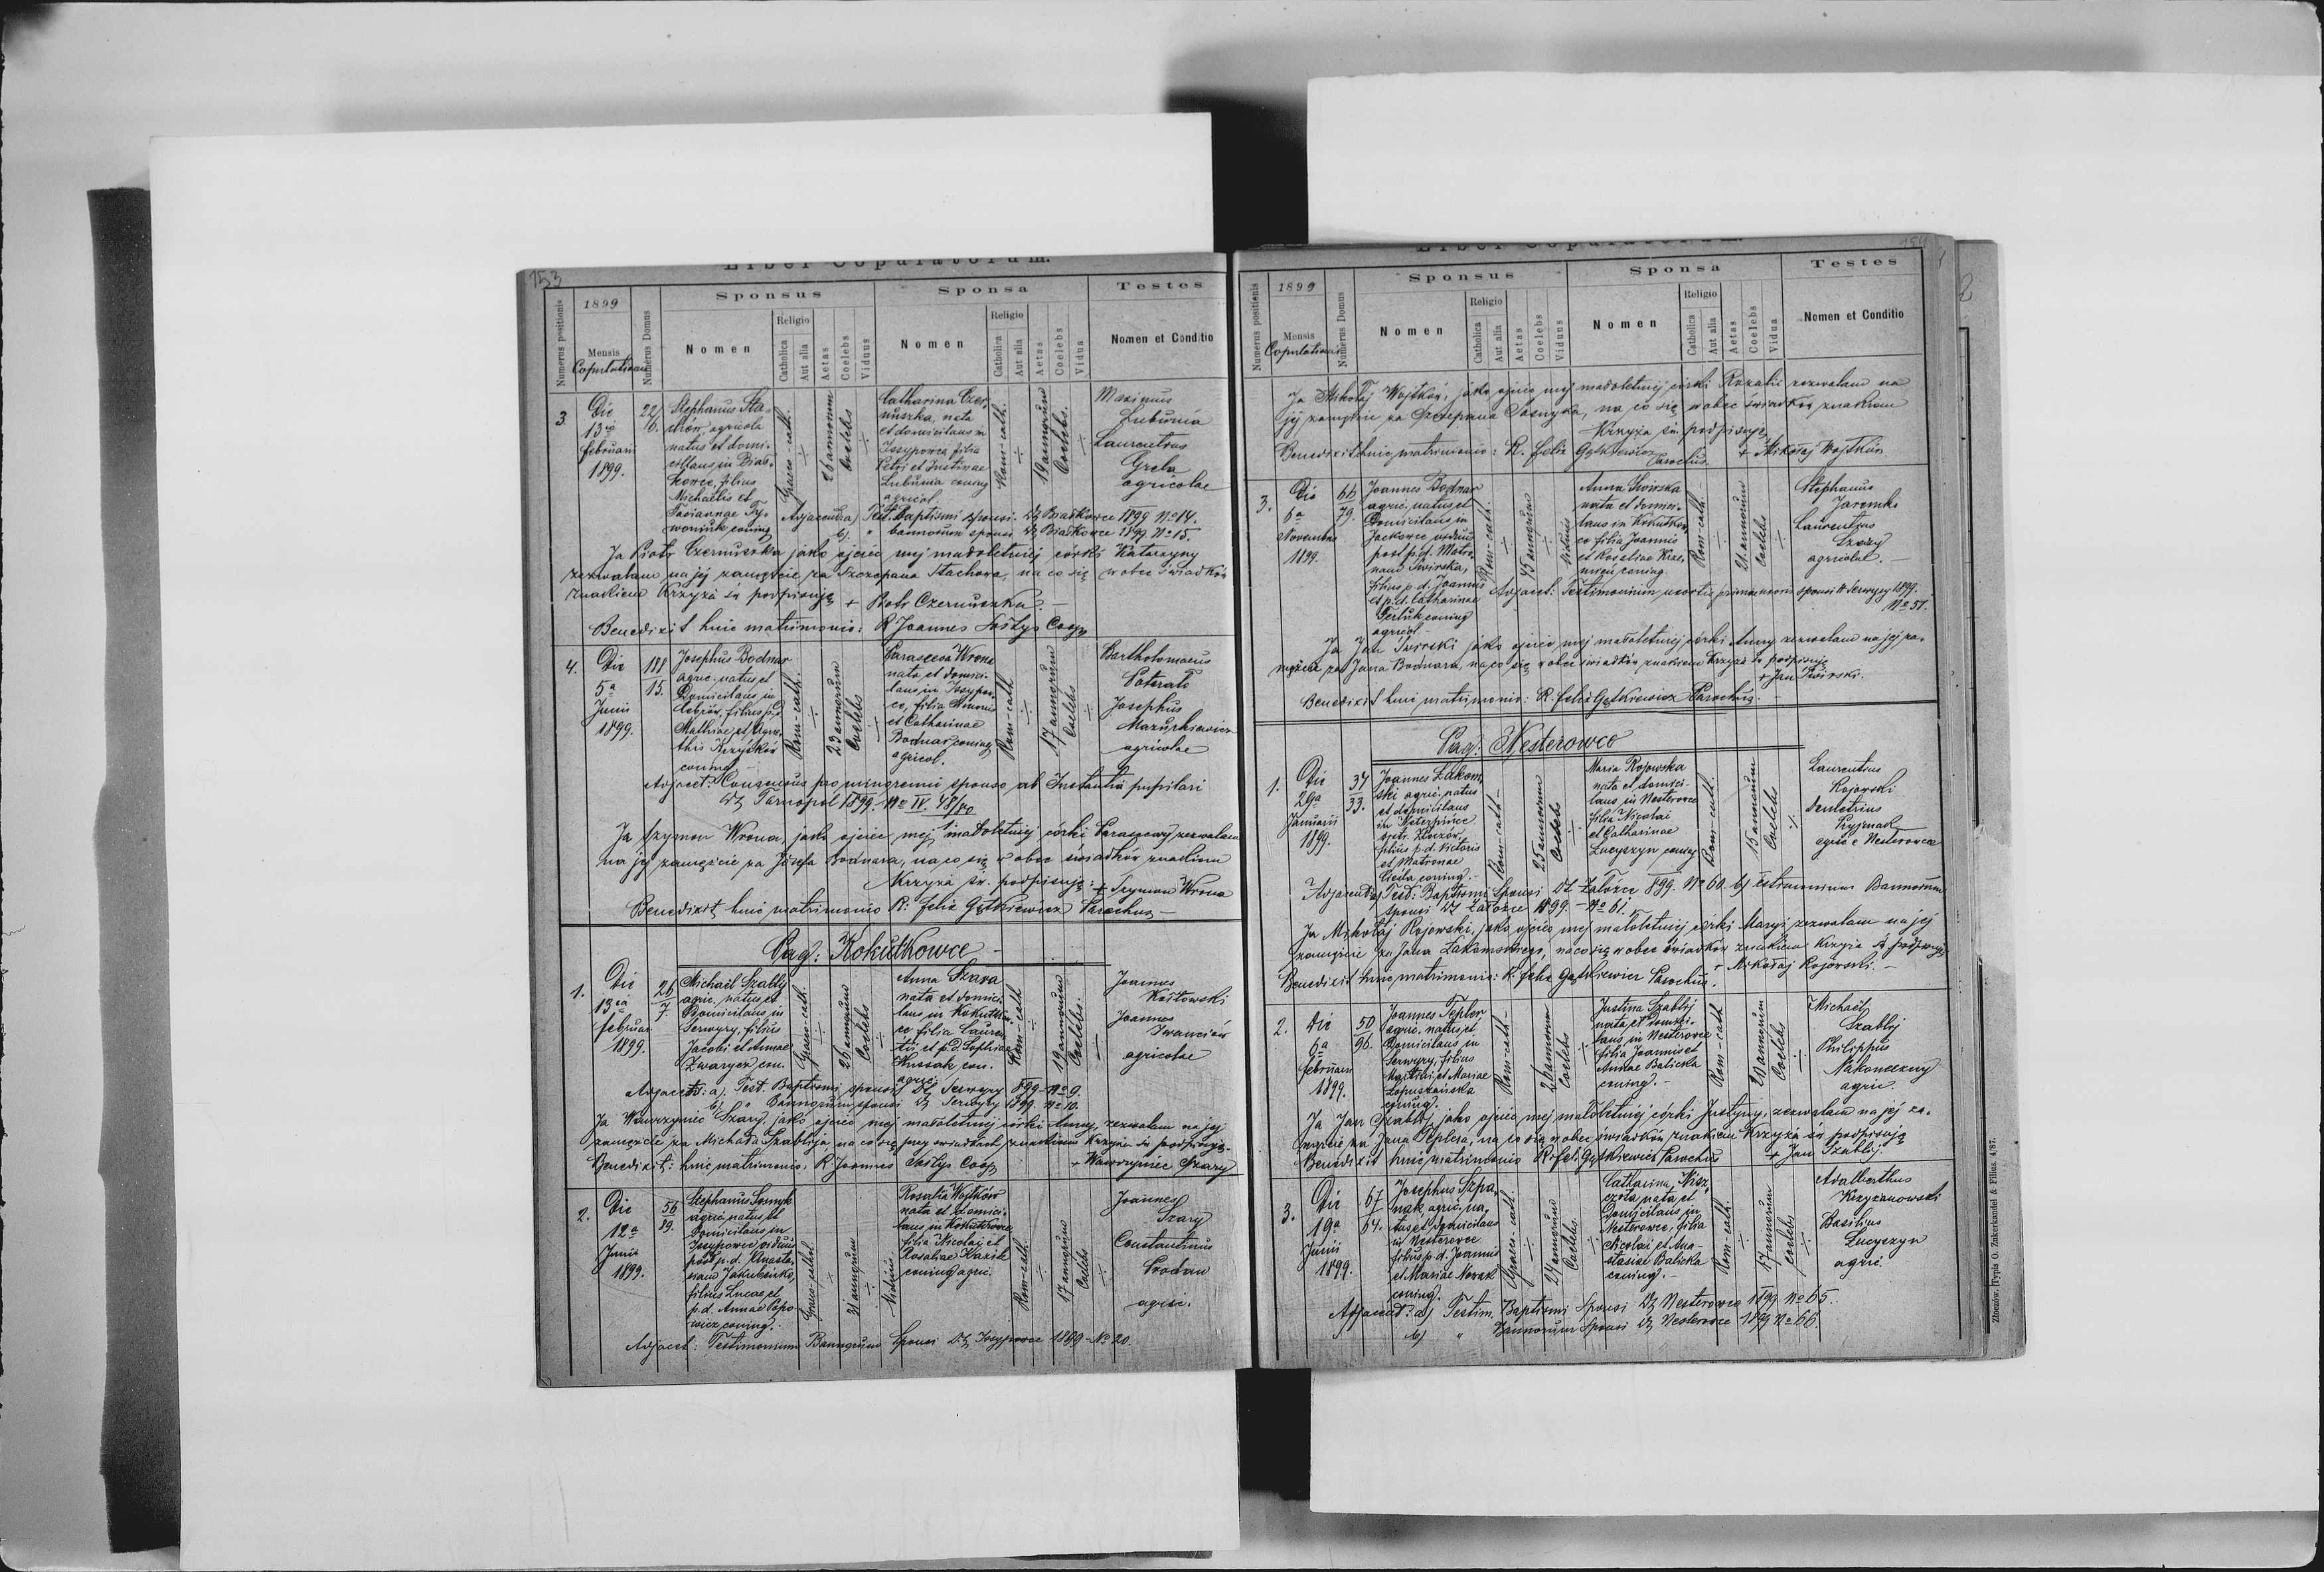 153
Liber Copulatorum.
Numerus positionis
1899
Mensis
Copulationis
Numerus Domus
Sponsus
Nomen
Religio
Catholica
Aut alia
Aetas
Coelebs
Viduus
Sponsa
Nomen
Religio
Catholica
Aut alia
Aetas
Coelebs
Vidua
Testes
Nomen et Conditio
3.
Die
13
februarii
1899.
22/6.
Stephanus Sta-
chow, agricola
natus et domi-
ciliaus in Biał-
kowce, filius
Michaelis et
Taciannae Ty-
woniuk coniug
Graeco-cath.
26 annorum
Coelebs
Catharina Czer-
nuszka, nata
et domicilians in
Jssypowce, filia
Petri et Justinae
Lubunia coniug
agricol.
Rom-cath.
19 annorum
Coelebs.
Maximus
Lubunia
Laurentius
Grela
agricolae
Adjacent a) Test. Baptismi sponsi. Dz Białkowce 1899 No 14.
b). " bannorum sponsi Dz Białkowce 1899 No 15.
Ja Piotr Czernuszka jako ojciec mej małoletniej córki Katarzyny
zezwalam na jej zamęście za Szczepana Stachowa, na co się wobec świadków
znakiem Krzyża św podpisuję + Piotr Czernuszka. -
Benedixit huic matrimonio: R Joannes Sostys Coop
4.
Die
5a
Junii
1899.
188
15.
Josephus Bodnar
agric. natus et
Domicilaus in
Cebrów, filius p.d.
Mathiae et Agne-
this Krzyśków
coniug.
Rom-cath.
23 annorum
Coelebs
Parasceva Wrona
nata et domici-
laus in Jssypow-
ce, filia Simonis
et Catharinae
Bodnar coniug
agricol.
Rom-cath
17 annorum
Coelebs
Bartholomaeus
Paterało
Josephus
Mazurkiewicz
agricolae
Adjacet: Consensus pro minorenni sponso ab Instantia pupilari
Dz Tarnopol 1899. No IV. 48/40
Ja Szymon Wrona, jako ojciec mej małoletniej córki Parascewy zezwalam
na jej zamęście za Józefa Bodnara, na co się w obec świadków znakiem
Krzyża św. podpisuję: + Szymon Wrona
Benedixit huic matrimonio R: felix Gątkiewicz Parochus -
Pag: Kokutkowce -
1.
Die
13
februar.
1899.
26
7.
Michael Szablij
agric. natus et
Domicilaus in
Serwyry, filius
Jacobi et Annae
Zwarycz con.
Graeco-cath.
26 annorum
Coelebs
Anna Szara
nata et domici-
laus in Kokutkow-
ce filia Lauren-
tii et p.d. Sophiae
Hussak con.
agric.
Rom-cath
19 annorum
Coelebs.
Joannes
Kosłowski
Joannes
Iwanciów
agricolae
Adjacent: a). Test. Baptismi sponsi Dz Serwyry 899 No 9.
b) " Bannorum sponsi Dz Serwyry 1899. No 10.
Ja Wawrzyniec Szary, jako ojciec mej małoletniej córki Anny, zezwalam na jej
zamęście za Michała Szablija, na co się przy świadkach znakiem Krzyża św podpisuję.
Benedixit: huic matrimonio: R Joannes Sostys Coop + Wawrzyniec Szary
2.
Die
12a
Junii
1899.
56
89.
Stephanus Sosnyk
agric. natus et
Domicilaus in
Jssypowce viduus
post p.d. Anasta-
siam Jakubisko,
filius Lucae et
p.d. Annae Popo-
wicz coniug.
Graeco-cathol.
21 annorum
Viduus
Rosalia Wojtków
nata et domici-
laus in Kokutkowce
filia Nicolai et
Rosaliae Kazik
coniug agric.
Rom-cath.
17 annorum
Coelebs
Joannes
Szary
Constantinus
Srodan
agric.
Adjacet: Testimonium Bannorum Sponsi Dz Jssypowce 1899 No 20.
154
Liber Copulatorum.
Numerus positionis
1899
Mensis
Copulationis
Numerus Domus
Sponsus
Nomen
Religio
Catholica
Aut alia
Aetas
Coelebs
Viduus
Sponsa
Nomen
Religio
Catholica
Aut alia
Aetas
Coelebs
Vidua
Testes
Nomen et Conditio
Ja Mikołaj Wojtków, jako ojciec mej małoletniej córki Rozalii zezwalam na
jej zamęście za Szczepana Sosnyka, na co się w obec świadków znakiem
Krzyża św. podpisuję
Benedixit huic matrimonio: R. felix Gątkiewicz Parochus. + Mikołaj Wojtków
3.
Die
6a
Novembris
1899.
66
79.
Joannes Bodnar
agric. natus et
Domicilaus in
Jackowce viduus
post p.d. Matro-
nam Swirska,
filius p.d. Joannis
et p.d. Catharinae
Terluk coniug
agricol.
Rom-cath.
45 annorum
Viduus
Anna Swirska
nata et domici-
laus in Kokutkow-
ce filia Joannis
et Rosaliae Krze-
mień coniug.
Rom-cath.
21 annorum
Coelebs
Stephanus
Jaremko
Laurentius
Szary
agricolae. -
Adjacet: Testimonium mortis primae uxoris sponsi Dz Serwyry 1899.
No 57.
Ja Jan Swirski jako ojciec mej małoletniej córki Anny zezwalam na jej za-
męście za Jana Bodnara, na co się w obec świadków znakiem Krzyża św podpisuję
+ Jan Swirski.
Benedixit huic matrimonio: R. felix Gątkiewicz Parochus. -
Pag: Nesterowce
1.
Die
29a
Januarii
1899.
37
33.
Joannes Łakom-
ski agric. natus
et domicilaus
in Neterpince
distr. Złoczów,
filius p.d. Victoris
et Matronae
Cicila coniug. -
Rom-cath-
25 annorum
Coelebs
Maria Rojowska
nata et domici-
laus in Nesterowce
filia Nicolai
et Catharinae
Łucyszyn coniug
Rom-cath.
15 annorum
Coelebs
Laurentius
Rojowski
Demetrius
Pryjmak
agric e Nesterowce
Adjacent a) Test. Baptismi Sponsi Dz Załóżce 899. No 60. b) Testimonium Bannorum
sponsi Dz Załoźce 1899. No 61.
Ja Mikołaj Rojowski, jako ojciec mej małoletniej córki Maryi zezwalam na jej
zamęście za Jana Łakomskiego, na co się w obec świadków znakiem Krzyża św podpisuję
+ Mikołaj Rojowski. -
Benedixit huic matrimonio: R. felix Gątkiewicz Parochus.
2.
Die
6a
februarii
1899.
50
96.
Joannes Tepler
agric. natus et
Domicilaus in
Serwyry, filius
Martini et Mariae
Łopuszańska
coniug.
Rom-cath-
26 annorum
Coelebs
Justina Szablij
nata et domici-
laus in Nesterowce
filia Joannis et
Annae Balicka
coniug. -
Rom-cath
20 annorum
Coelebs
Michael
Szablij
Philippus
Nakoneczny
agric.
Ja Jan Szablij, jako ojciec mej małoletniej córki Justyny, zezwalam na jej za-
męście za Jana Teplera, na co się w obec świadków znakiem Krzyża św podpisuję
Benedixit huic matrimonio R. felix Gątkiewicz Parochus + Jan Szablij.
3.
Die
19a
Junii
1899.
67
64.
Josephus Szpa-
nak, agric. na-
tus et domicilaus
in Nesterowce
filius p.d. Joannis
et Mariae Nowak
coniug.
Graeco-cath.
24 annorum
Coelebs
Catharina Nisz-
czota, nata et
Domicilaus in
Nesterowce, filia
Nicolai et Ana-
stasiae Balicka
coniug. -
Rom-cath.
17 annorum
Coelebs
Adalberthus
Krzyżanowski
Basilius
Łucyszyn
agric.
Adjacent: a) Testim. Baptismi Sponsi Dz Nesterowce 1899 No 65.
b) " Bannorum Sponsi Dz Nesterowce 1899 No 66.
Złoczów, Typis O. Zukerkandel & Filius. 4/87.